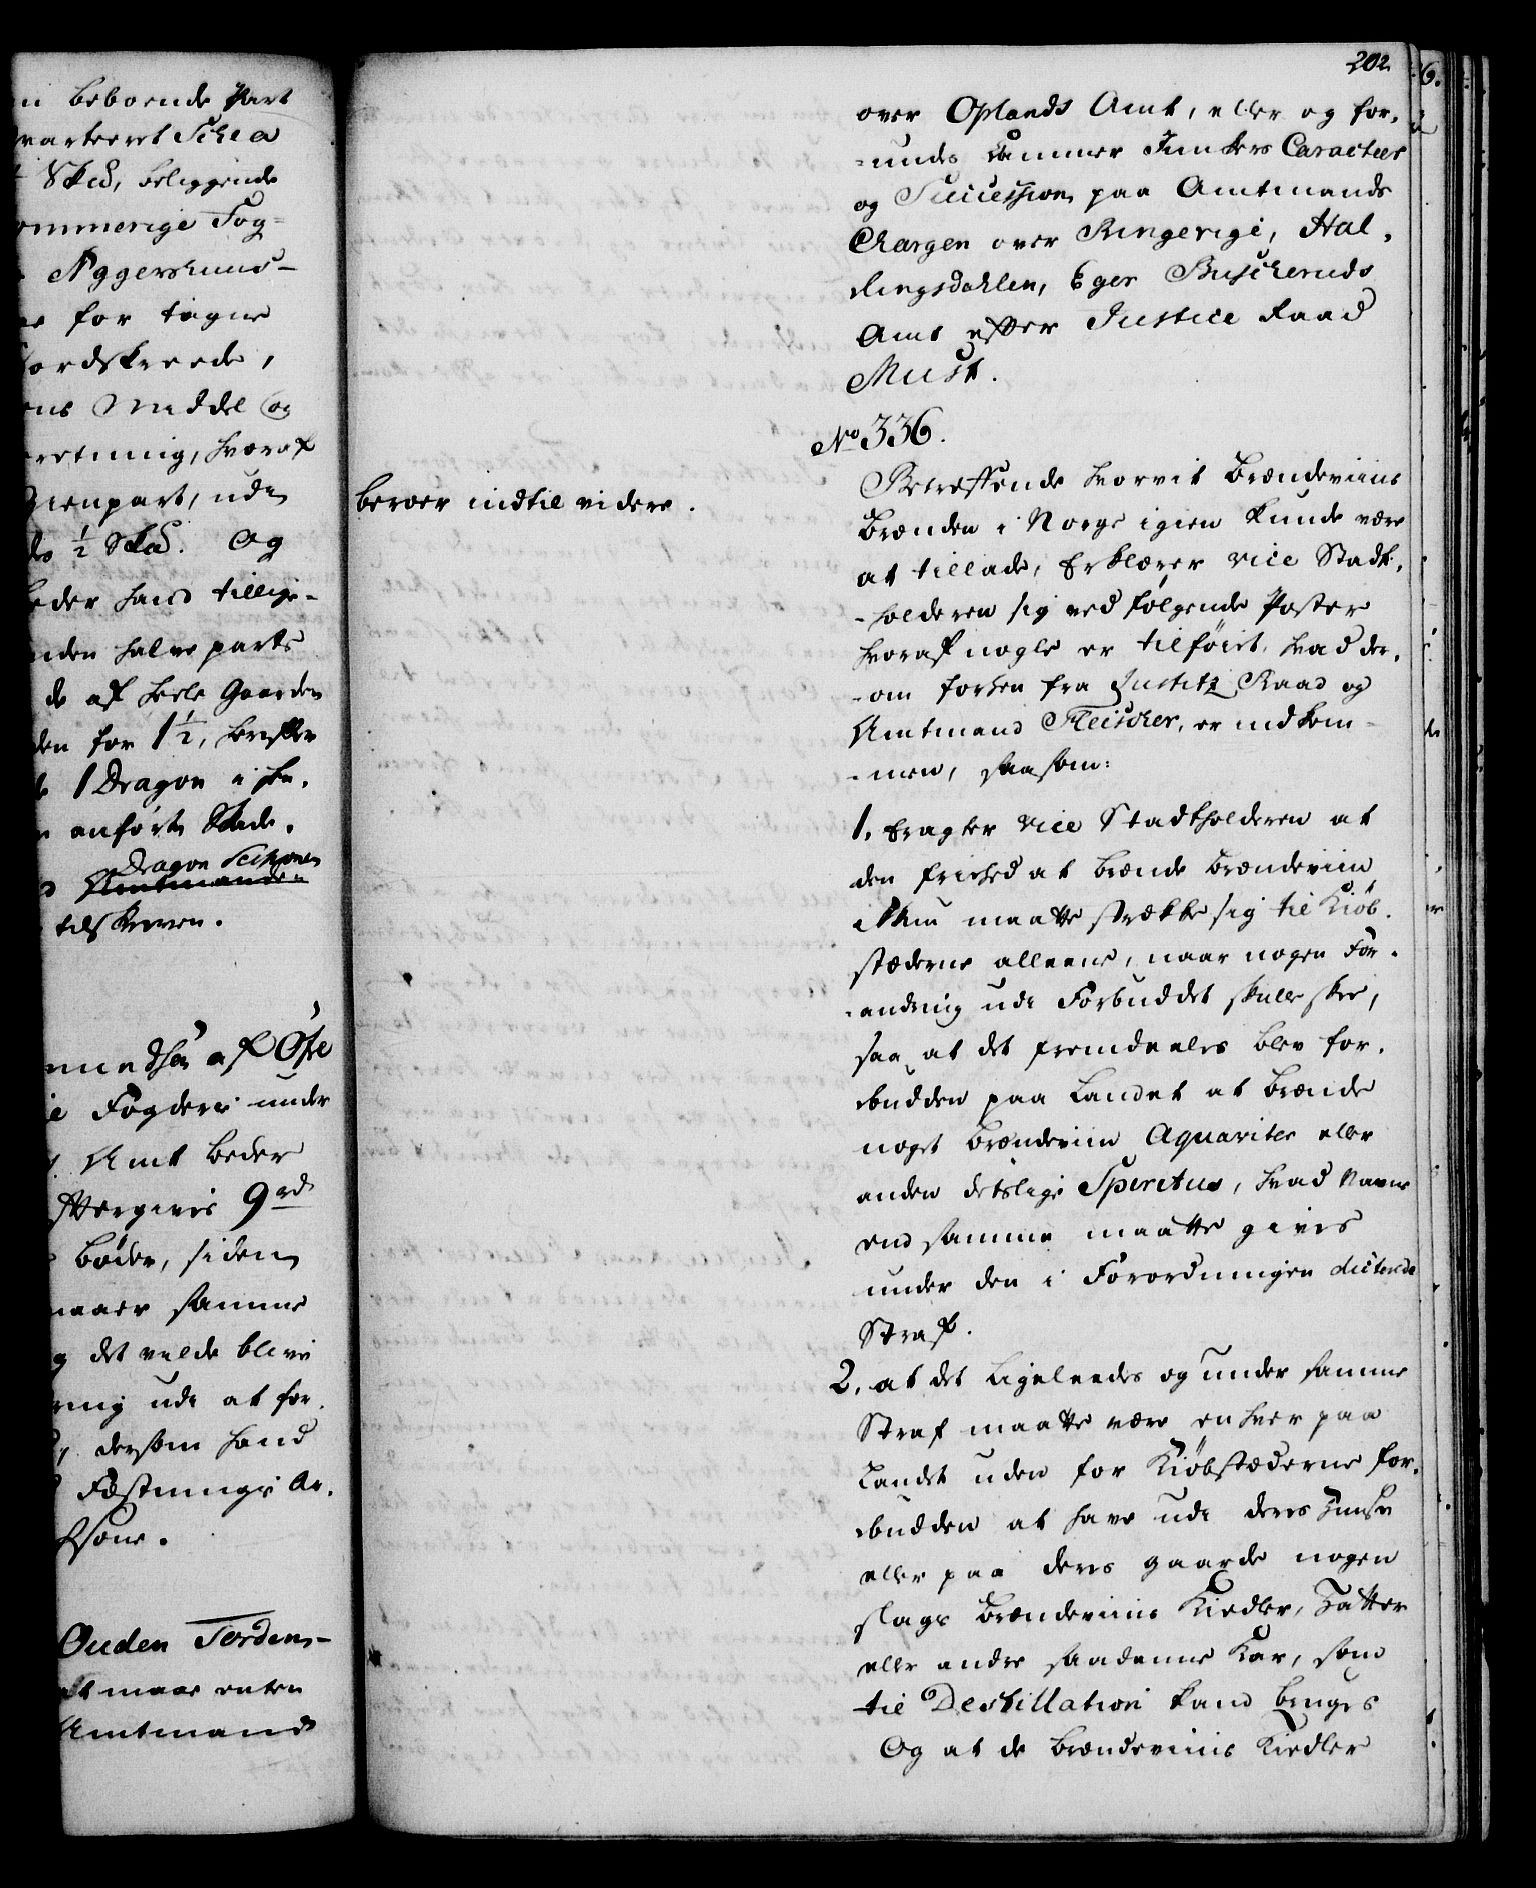 n beboende Part
qvarteret Schea
Skd, beliggende
ommerige Fog-
Aggershuus-
for tagne
ordskreede,
ens Middel og
retning, hvoraf
Gienpart, ude
½ Skd. Og
beder hand tillige-
nden halve parts
de af heele Gaarden
den for 1½, hvilken
1 Dragon i ste,
anførte Skade.
Dragon
Amtmanden
tilskreven.
mundsen af Ofte
Fogderie under
Amt beder
eftergives 9 rd
Bøder, siden
naaer samme
det vilde blive
ning udi at for,
dersom hand
Fæstnings Ar,
Ouden Tordens-
at maae enten
Amtmand
beroer indtil videre.
202
over Oplands Amt, eller og for,
-unds Cammer Junkers Caracteer
og Succession paa Amtmands
Chargen over Ringerige, Hal,
lingsdahlen, Eger Buscheruds
Amt efter Justice Raad
Must.
No 336.
Betreffende hvorvit Brændeviins
Brænden i Norge igien kunde være
at tillade, Erklærer vice Stadt,
-holderen sig ved følgende Poster
hvoraf nogle er tilføiet, hvad der,
-om forhen fra Justitz Raad og
Amtmand Fleischer, er indkom-
-men, saasom:
1. Eragter vice Stadtholderen at
den friehed at brænde Brændeviin
ikkun maatte strække sig til Kiøb-
stæderne alleene, naar nogen For-
-andring udi Forbuddet skulle skee,
saa at det fremdeeles blev for,
budden paa Landet at brænde
noget Brændeviin Aquaviter eller
anden detslige Speritus, hvad Navne
end samme maatte gives
under den i Forordningen dicterede
Straf.
2. at det ligeleedes og under samme
Straf maatte være enhver paa
Landet uden for Kiøbstæderne for,
budden at have udi deres Huuse
eller paa deres gaarde nogen
slags Brændeviins Kiedler, Hatter
eller andre saadanne Kar, som
til Destillation kand bruges
Og at de Brændeviins Kiedler